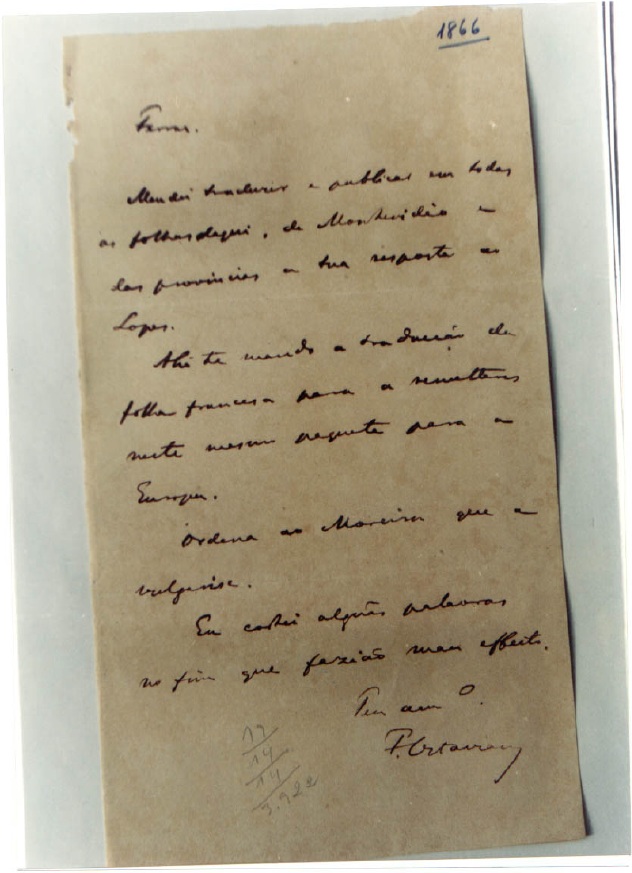 1866
Ferrer.
Mandei traduzir e publicar em todas
as folhas daqui, de Montevidéo e
das provincias a tua resposta ao
Lopes.
Ahi te mando a traducção da
folha francesa para a remetteres
neste mesmo paquete para a
Europa.
Ordena ao Moreira que a
vulgarise.
Eu cortei algũas palavras
no fim que fazião mau effeito.
Teu am.º
F. Octaviano
17
14
14